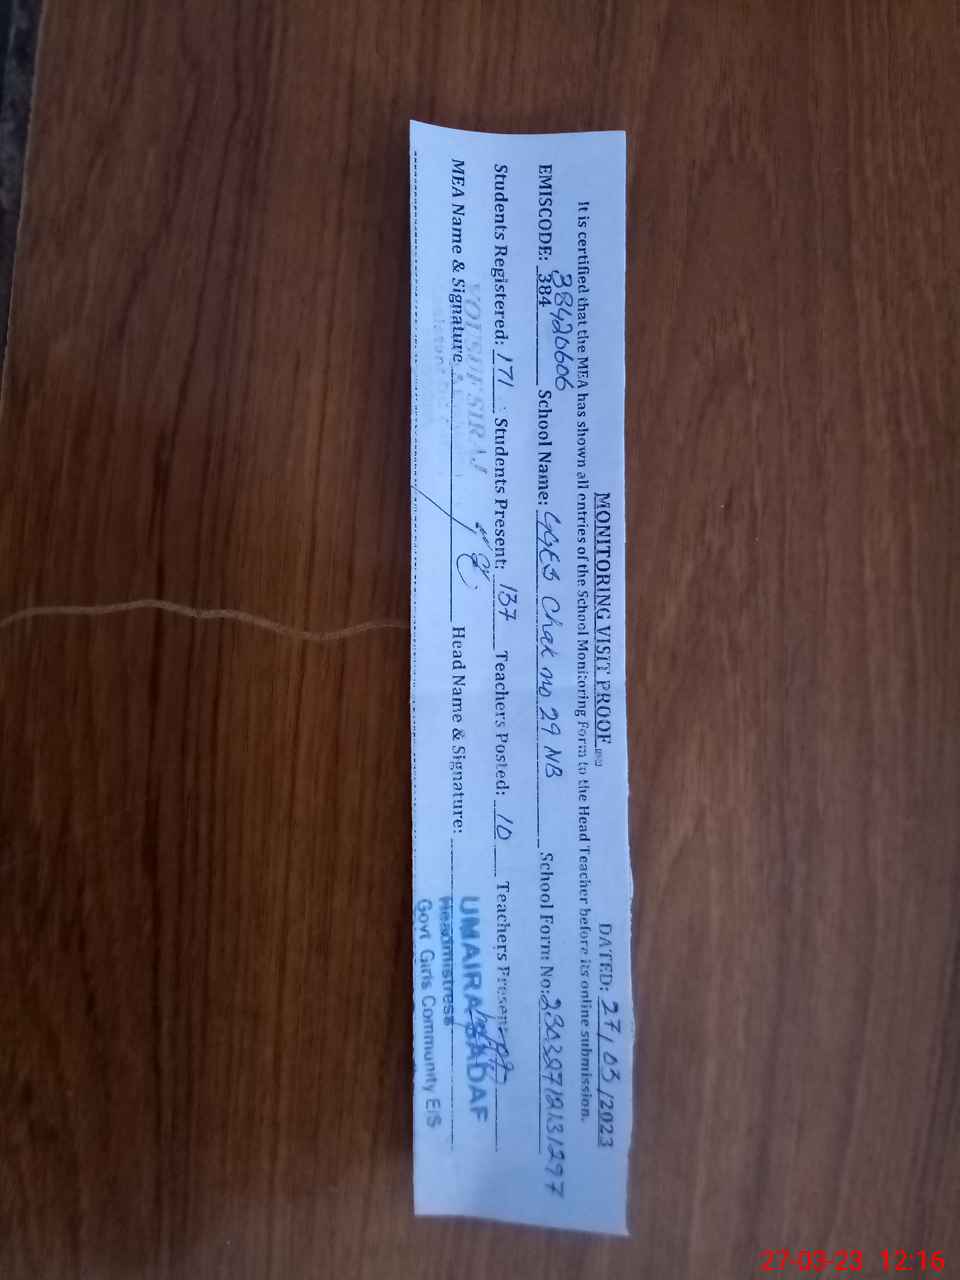 MONITORING VISIT PROOF
DATED: 27/03/2023
It is certified that the MEA has shown all entries of the School Monitoring Form to the Head Teacher before its online submission.
38420606
EMISCODE: 384 School Name: GGES Chak no. 29 NB School Form No:
Students Registered: 171 Students Present: 137 Teachers Posted: 10 Teachers Present
MEA Name & Signature Head Name & Signature:
SIRAJ
UMAIRA SADAF
Headmistress
Govt Girls Community E/S
27-03-23 12:16